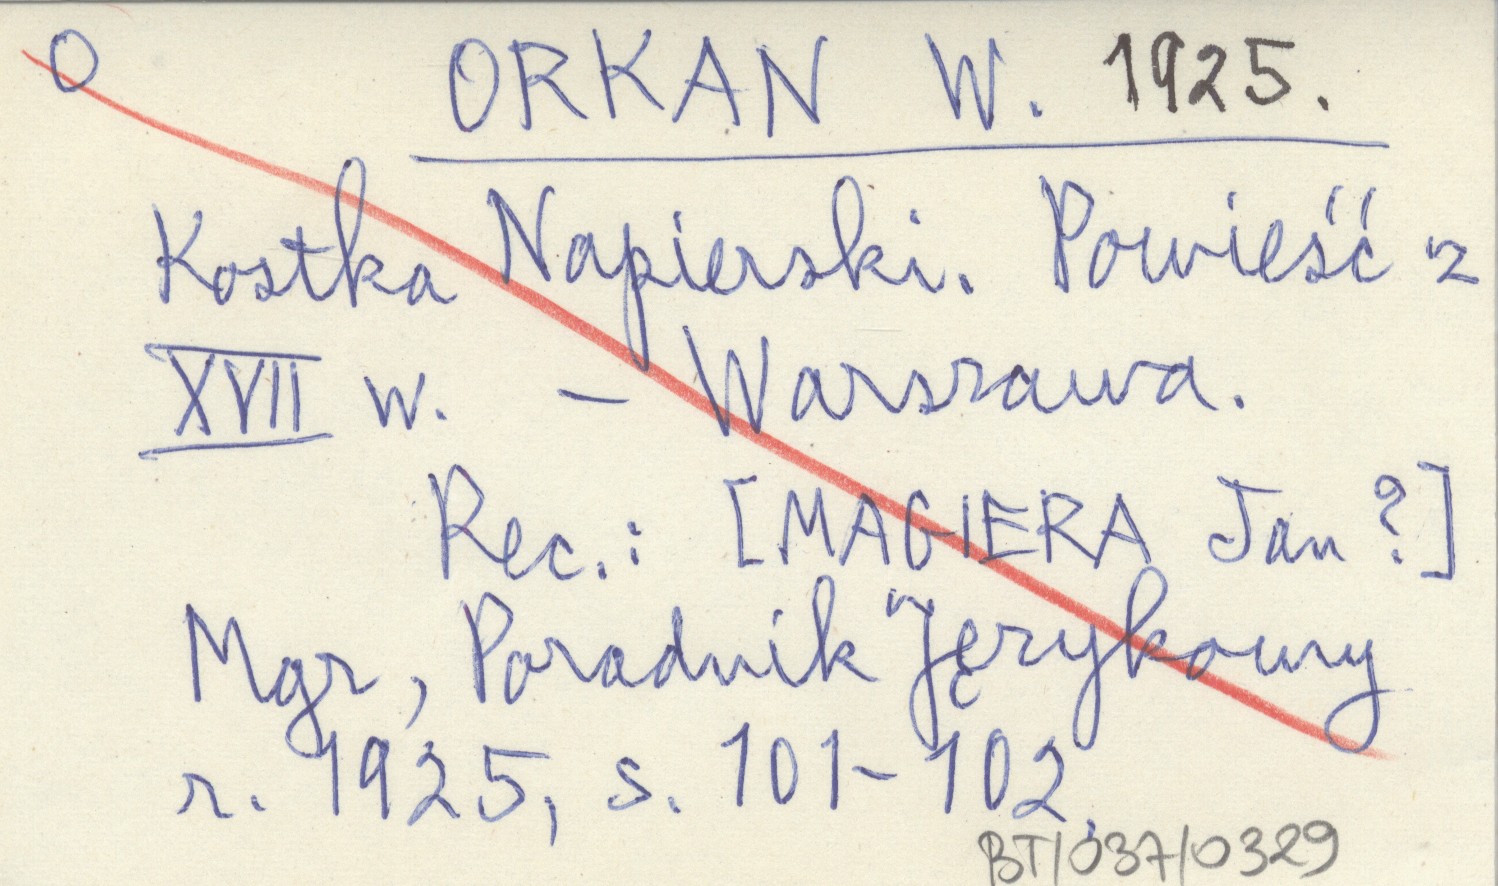 O ORKAN W. 1925.
Kostka Napierski. Powieść z
XVII w. – Warszawa.
Rec.: [MAGIERA Jan?]
Mgr, Poradnik Językowy
r. 1925, s. 101-102.
BT/037/0329